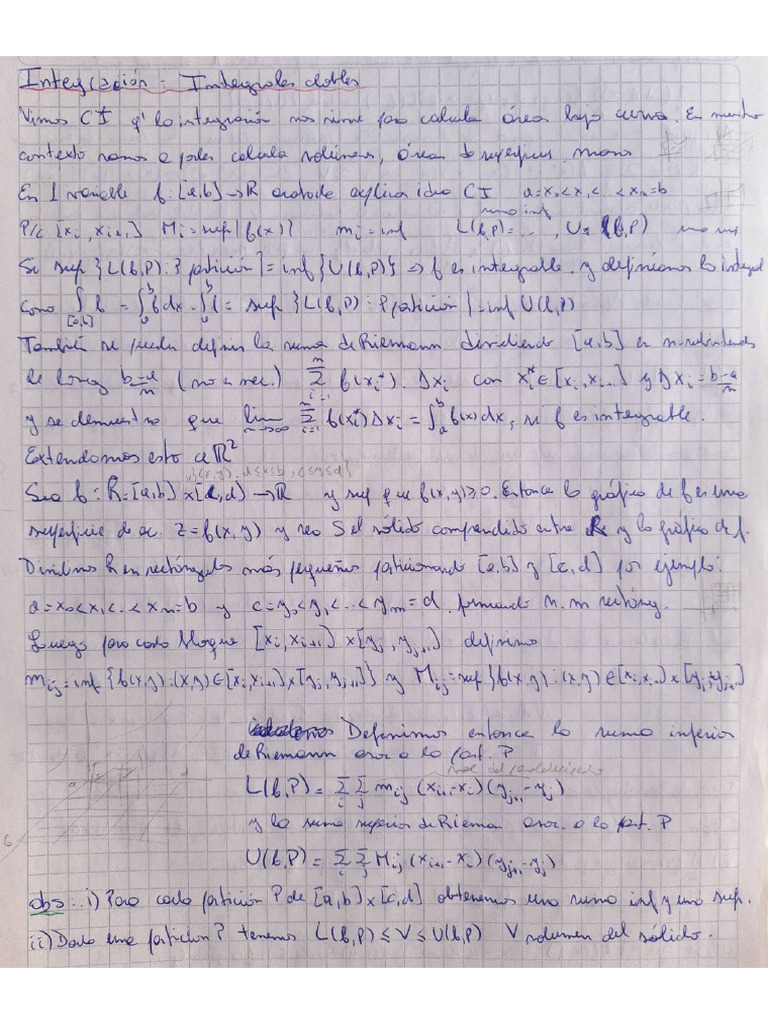 Integración: Integrales dobles
Vimos CI q' la integración nos sirve para calcular área bajo curva. En nuestro
contexto vamos a poder calcular volúmenes, área de superficies, masas
En 1 variable f: [a,b] → R acotada explicar idea CI a=x₀<x₁<...<xₙ=b
suma inf
P/c [xᵢ, xᵢ₊₁] Mᵢ = sup{f(x)} mᵢ = inf L(f,P)=..., U=(f,P) suma sup
Si sup {L(f,P): P partición} = inf {U(f,P)} ⇒ f es integrable. y definimos la integral
como ∫[a,b] f = ∫ₐᵇ f dx = ∫ₐᵇ f = sup {L(f,P): P partición} = inf U(f,P)
También se puede definir la suma de Riemann dividiendo [a,b] en n-subintervalos
de long b-a/n (no es nec.) Σᵢ₌₁ⁿ f(xᵢ*). Δxᵢ con xᵢ* ∈ [xᵢ, xᵢ₊₁] y Δxᵢ = b-a/n
y se demuestra que lim n→∞ Σᵢ₌₁ⁿ f(xᵢ*) Δxᵢ = ∫ₐᵇ f(x) dx, si f es integrable.
Extendamos esto a R²
{(x,y): a≤x≤b, c≤y≤d}
Sea f: R=[a,b]×[c,d] → R y sup que f(x,y)≥0. Entonces la gráfica de f es una
superficie de ec. z=f(x,y) y sea S el sólido comprendido entre R y la gráfica de f.
Dividimos R en rectángulos más pequeños particionando [a,b] y [c,d] por ejemplo:
a=x₀<x₁<..<xₙ=b y c=y₀<y₁<..<yₘ=d. formando n.m rectáng.
Luego para cada bloque [xᵢ, xᵢ₊₁]×[yⱼ, yⱼ₊₁] definimos
mᵢⱼ = inf {f(x,y): (x,y)∈[xᵢ,xᵢ₊₁]×[yⱼ,yⱼ₊₁]} y Mᵢⱼ = sup{f(x,y): (x,y)∈[xᵢ,xᵢ₊₁]×[yⱼ,yⱼ₊₁]}
Definimos entonces la suma inferior
de Riemann asoc. a la part. P
L(f,P) = Σᵢ Σⱼ mᵢⱼ (xᵢ₊₁-xᵢ)(yⱼ₊₁-yⱼ)
y la suma superior de Rieman asoc. a la part. P
U(f,P) = Σᵢ Σⱼ Mᵢⱼ (xᵢ₊₁-xᵢ)(yⱼ₊₁-yⱼ)
obs: i) Para cada partición P de [a,b]×[c,d] obtenemos una suma inf y una sup.
ii) Dada una partición P tenemos L(f,P) ≤ V ≤ U(f,P) V volumen del sólido.